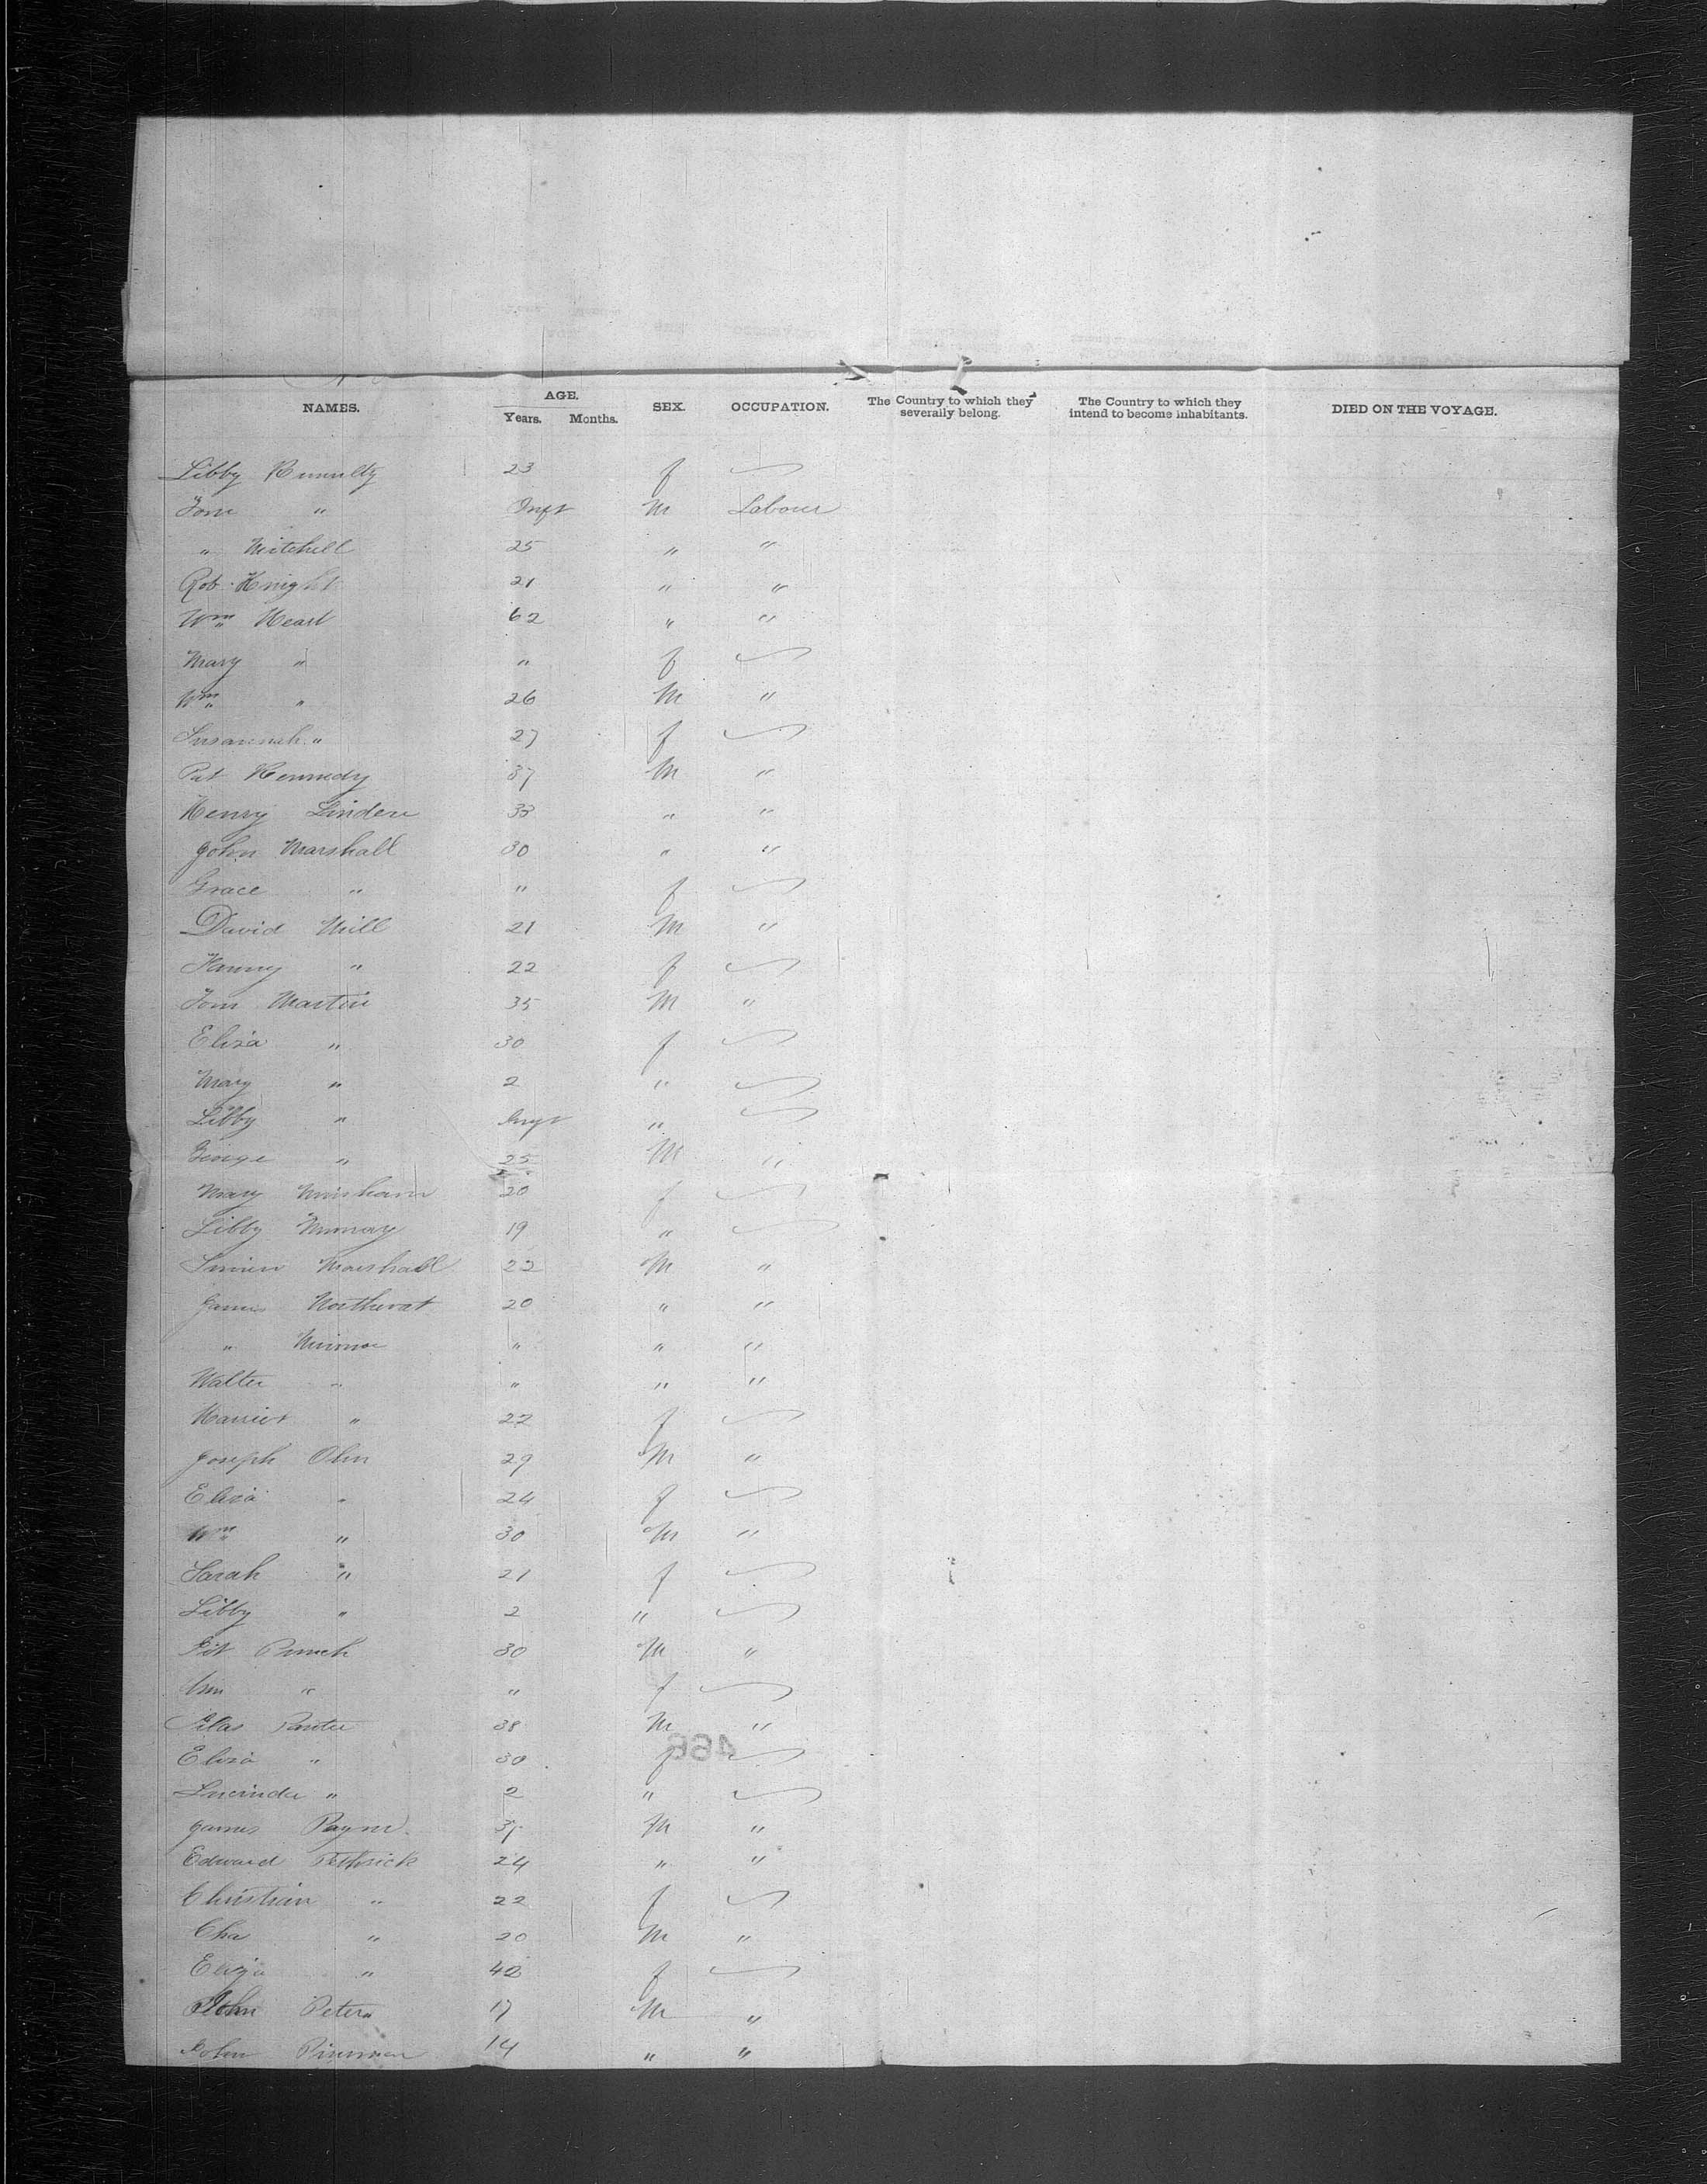 NAMES. AGE. Years. Months. SEX. OCCUPATION. The Country to which they severally belong. The Country to which they intend to become inhabitants. DIED ON THE VOYAGE.
Libby 23 f
Tom " Inft M Labour
" Mitchell 25 " "
Rob Knight 21 " "
Wm 62 " "
Mary " " f
Wm " 26 M "
Susannah " 27 f
Pat Kennedy 37 M "
Henry Linden 33 " "
John Marshall 30 " "
Grace " " f
David Mill 21 M "
Fanny " 22 f
Tom Martin 35 M "
Eliza " 30 f
Mary " 2 "
Libby " Inft "
George " 25 M "
Mary 20 f
Libby 19 "
Marshall 22 M "
James 20 " "
" " " "
Walter " " " "
Harriet " 22 f
Joseph 29 M "
Eliza " 24 f
Wm " 30 M "
Sarah " 21 f
Libby " 2 "
30 M "
" " f
Silas 38 M "
Eliza " 30 f
Lucinda " 2 "
James Payne M "
Edward Pethrick 24 " "
Christian " 22 f
Cha " 20 M "
Eliza " f
John Peters 17 M "
John 14 " "